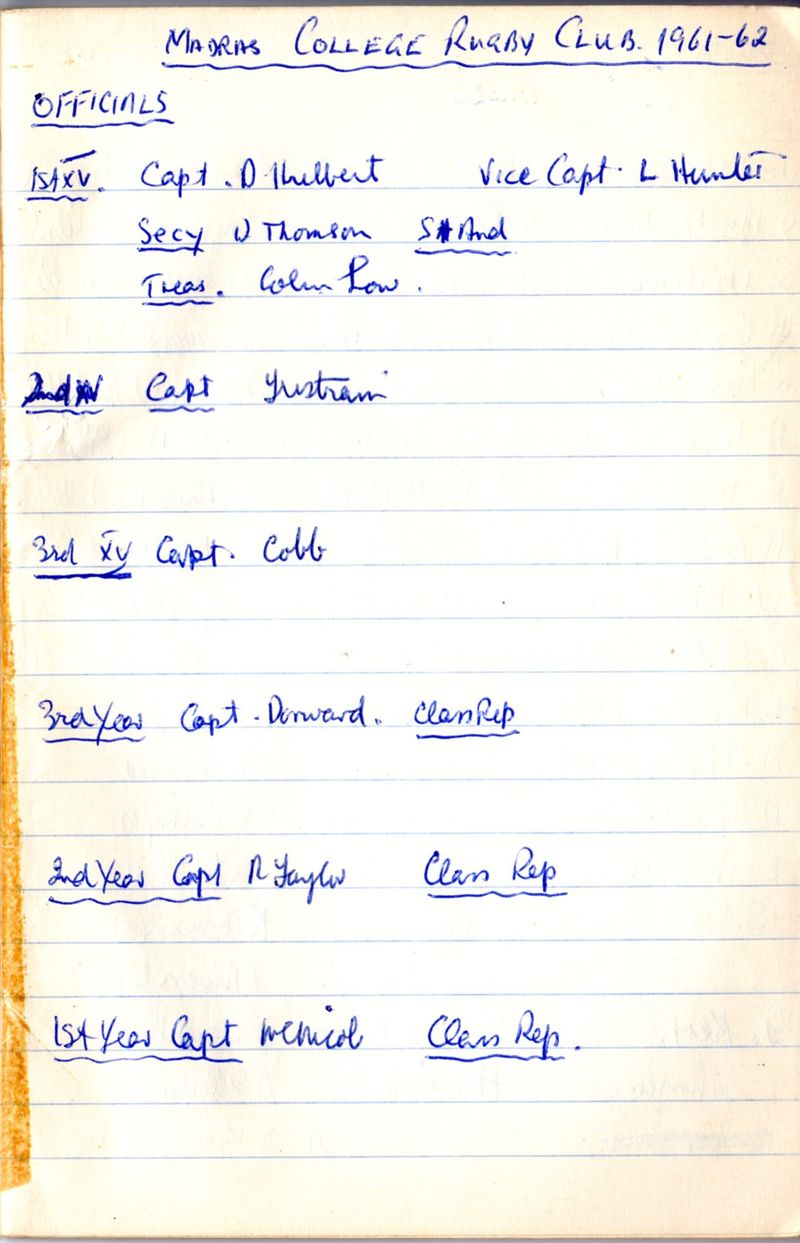 MADRAS COLLEGE RUGBY CLUB. 1961-62
OFFICIALS
1st XV. Capt. D Hulbert Vice Capt. L Hunter
Secy W Thomson St And
Treas. Colin Low.
2nd XV Capt
3rd XV Capt. Cobb
3rd Year Capt. Dorward. Class Rep
2nd Year Capt R Taylor Class Rep
1st Year Capt McNicol Class Rep.